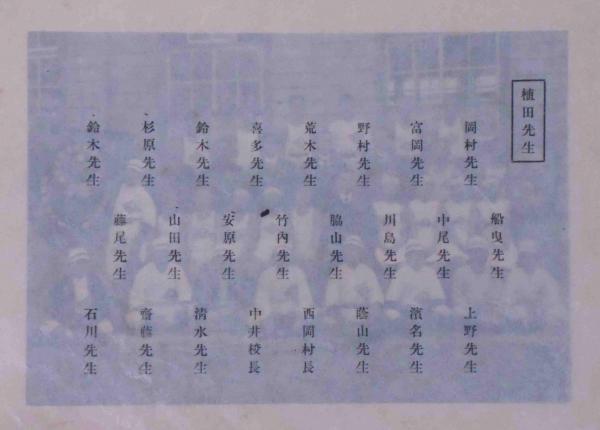 植田先生
岡村先生
富岡先生
野村先生
荒木先生
喜多先生
鈴木先生
杉原先生
鈴木先生
船曳先生
中尾先生
川島先生
脇山先生
竹內先生
安原先生
山田先生
藤尾先生
上野先生
濱名先生
蔭山先生
西岡村長
中井校長
清水先生
齋藤先生
石川先生